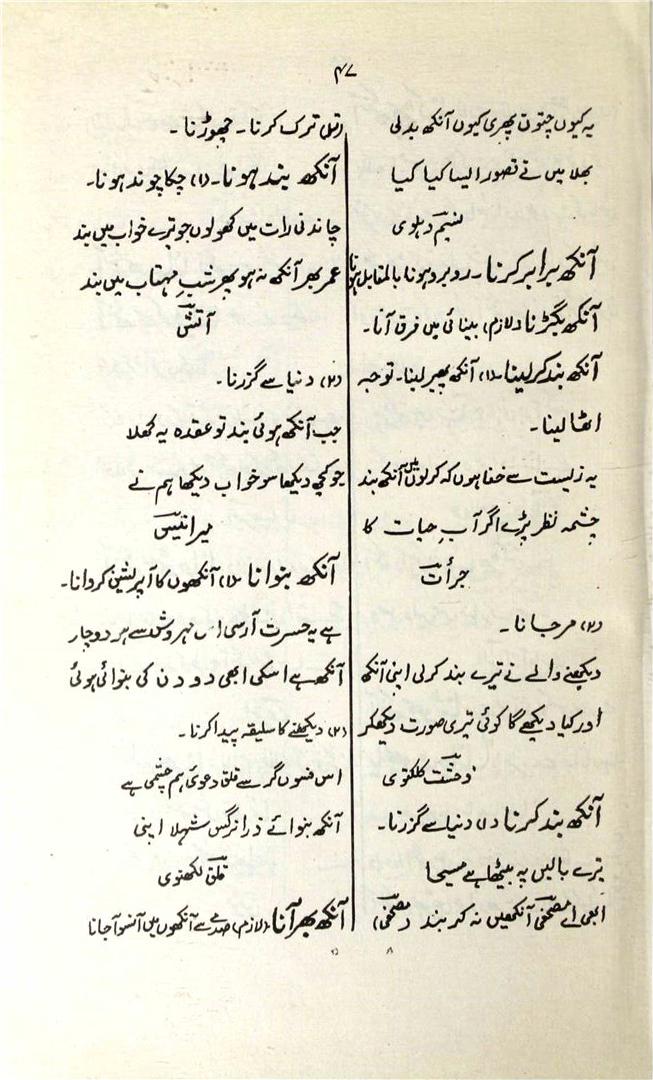 ۴۷
یہ کیوں چتون پھری کیوں آنکھ بدلی
بھلا میں نے تصور ایسا کیا کیا
نسیم دہلوی
آنکھ برابر کرنا۔ روبرو ہونا بالمقابل ہونا
آنکھ بگڑنا (لازم) بینائی میں فرق آنا۔
آنکھ بند کر لینا۔ (۱) آنکھ پھیر لینا۔ توجہ
اٹھا لینا۔
یہ زیست سے خفا ہوں کہ کر لوں میں آنکھ بند
چشمہ نظر پڑے اگر آبِ حیات کا
جرأت
(۲) مر جانا۔
دیکھنے والے نے تیرے بند کر لی اپنی آنکھ
اور کیا دیکھے گا کوئی تیری صورت دیکھ کر
وحشت کلکتوی
آنکھ بند کرنا (۱) دنیا سے گزرنا۔
ترے بالیں پہ بیٹھا ہے مسیحا
ابھی اے مصحفی آنکھیں نہ کر بند (مصحفی)
ترک کرنا۔ چھوڑنا۔
آنکھ بند ہونا۔ (۱) چکا چوند ہونا۔
چاندنی رات میں کھولوں جو ترے خواب میں بند
عمر بھر آنکھ نہ ہو پھر شبِ مہتاب میں بند
آتش
(۲) دنیا سے گزرنا۔
جب آنکھ ہوئی بند تو عقدہ یہ کھلا
جو کچھ دیکھا سو خواب دیکھا ہم نے
میر انیس
آنکھ بنوانا (۱) آنکھوں کا آپریشن کروانا۔
ہے یہ حسرت آرسی اس مہروش سے ہر دوچار
آنکھ ہے اسکی ابھی دو دن کی بنوائی ہوئی
(۲) دیکھنے کا سلیقہ پیدا کرنا۔
اس فسوں گر سے قلق دعویٰ ہم چشمی ہے
آنکھ بنوائے ذرا نرگس شہلا اپنی
قلق لکھنوی
آنکھ بھر آنا (لازم) صدمے سے آنکھوں میں آنسو آجانا